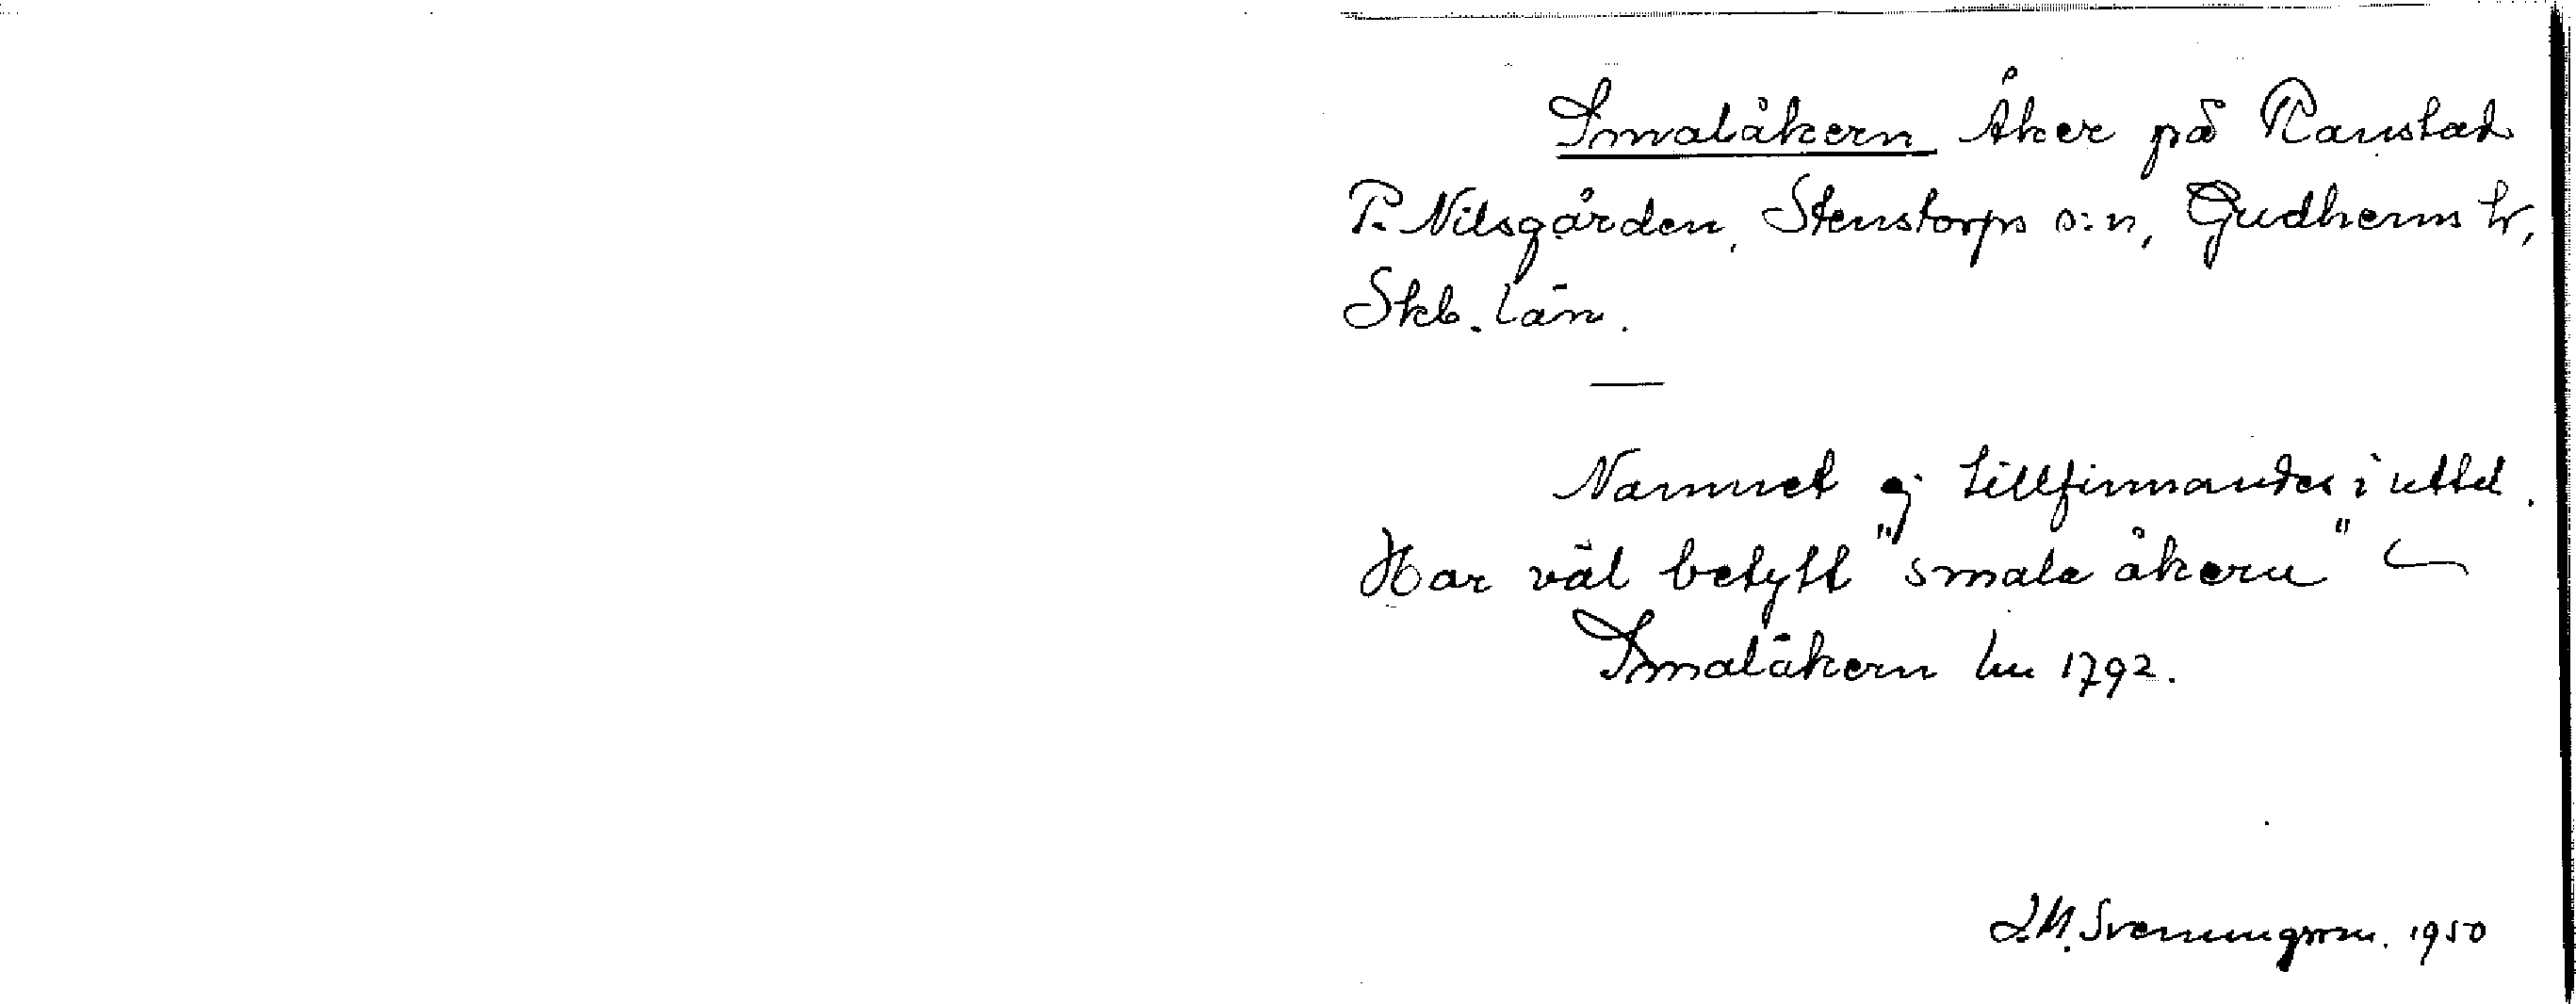 Smalåkern Åker på Ranstad
P. Nilsgården, Stenstorps s:n, Gudhems hr,
Skb. län.
Namnet ej tillfinnandes i uttal.
Har väl betytt "smala åkern"
Smalåkern lm 1792.
J.M. Svenungsson. 1950